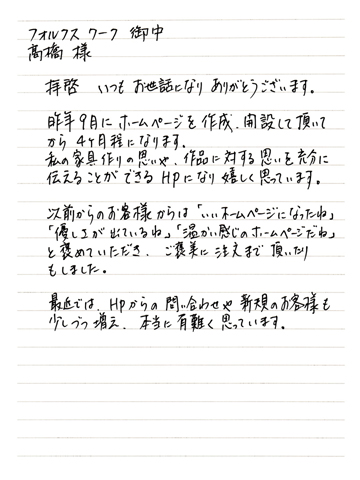 フォルフス ワーク 御中
髙橋 様
拝啓 いつも お世話になり ありがとうございます。
昨年9月に ホームページを 作成、開設して頂いて
から 4ヶ月程になります。
私の家具作りの思いや、作品に対する思いを充分に
伝えることが できる HPになり 嬉しく思っています。
以前からのお客様からは「いいホームページになったね」
「優しさが出ているね」「温かい感じのホームページだね」
と褒めていただき、ご褒美に注文まで頂いたり
もしました。
最近では、HPからの問い合わせや 新規のお客様も
少しづつ増え、本当に有難く思っています。